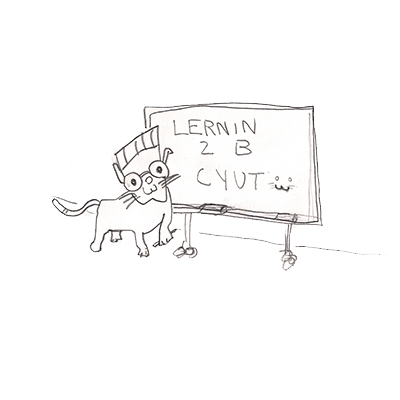 LERNIN
2 B
CYUT